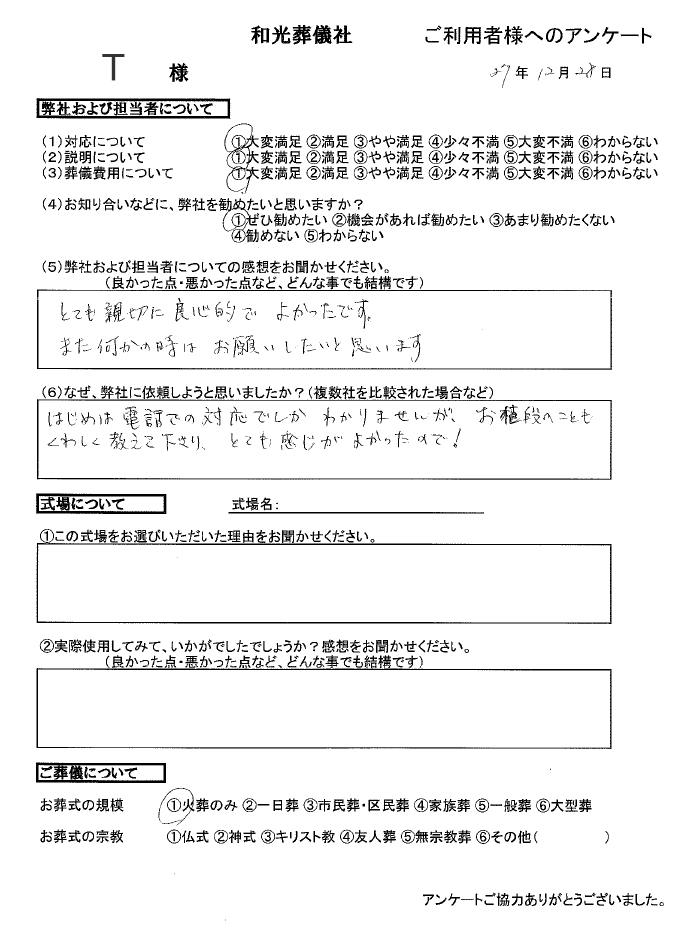 和光葬儀社 ご利用者様へのアンケート
T 様 27年12月28日
弊社および担当者について
(1)対応について ①大変満足 ②満足 ③やや満足 ④少々不満 ⑤大変不満 ⑥わからない
(2)説明について ①大変満足 ②満足 ③やや満足 ④少々不満 ⑤大変不満 ⑥わからない
(3)葬儀費用について ①大変満足 ②満足 ③やや満足 ④少々不満 ⑤大変不満 ⑥わからない
(4)お知り合いなどに、弊社を勧めたいと思いますか？
①ぜひ勧めたい ②機会があれば勧めたい ③あまり勧めたくない
④勧めない ⑤わからない
(5)弊社および担当者についての感想をお聞かせください。
(良かった点・悪かった点など、どんな事でも結構です)
とても親切に良心的で よかったです。
また何かの時は お願いしたいと思います
(6)なぜ、弊社に依頼しようと思いましたか？(複数社を比較された場合など)
はじめは電話での対応でしか わかりませんが、お値段のことも
くわしく教えて下さり、とても感じがよかったので！
式場について 式場名：
①この式場をお選びいただいた理由をお聞かせください。
②実際使用してみて、いかがでしたでしょうか？感想をお聞かせください。
(良かった点・悪かった点など、どんな事でも結構です)
ご葬儀について
お葬式の規模 ①火葬のみ ②一日葬 ③市民葬・区民葬 ④家族葬 ⑤一般葬 ⑥大型葬
お葬式の宗教 ①仏式 ②神式 ③キリスト教 ④友人葬 ⑤無宗教葬 ⑥その他( )
アンケートご協力ありがとうございました。